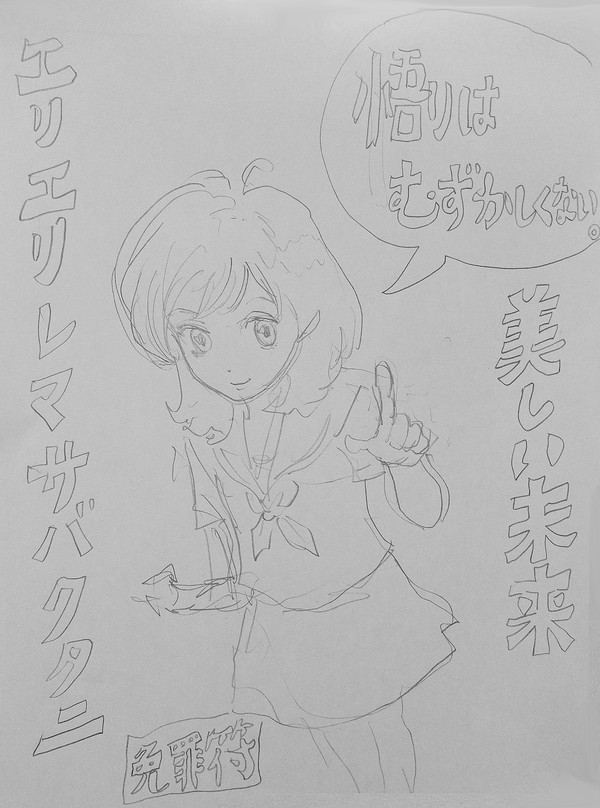 悟りは
むずかしくない。
美しい未来
エリエリレマサバクタニ
免罪符